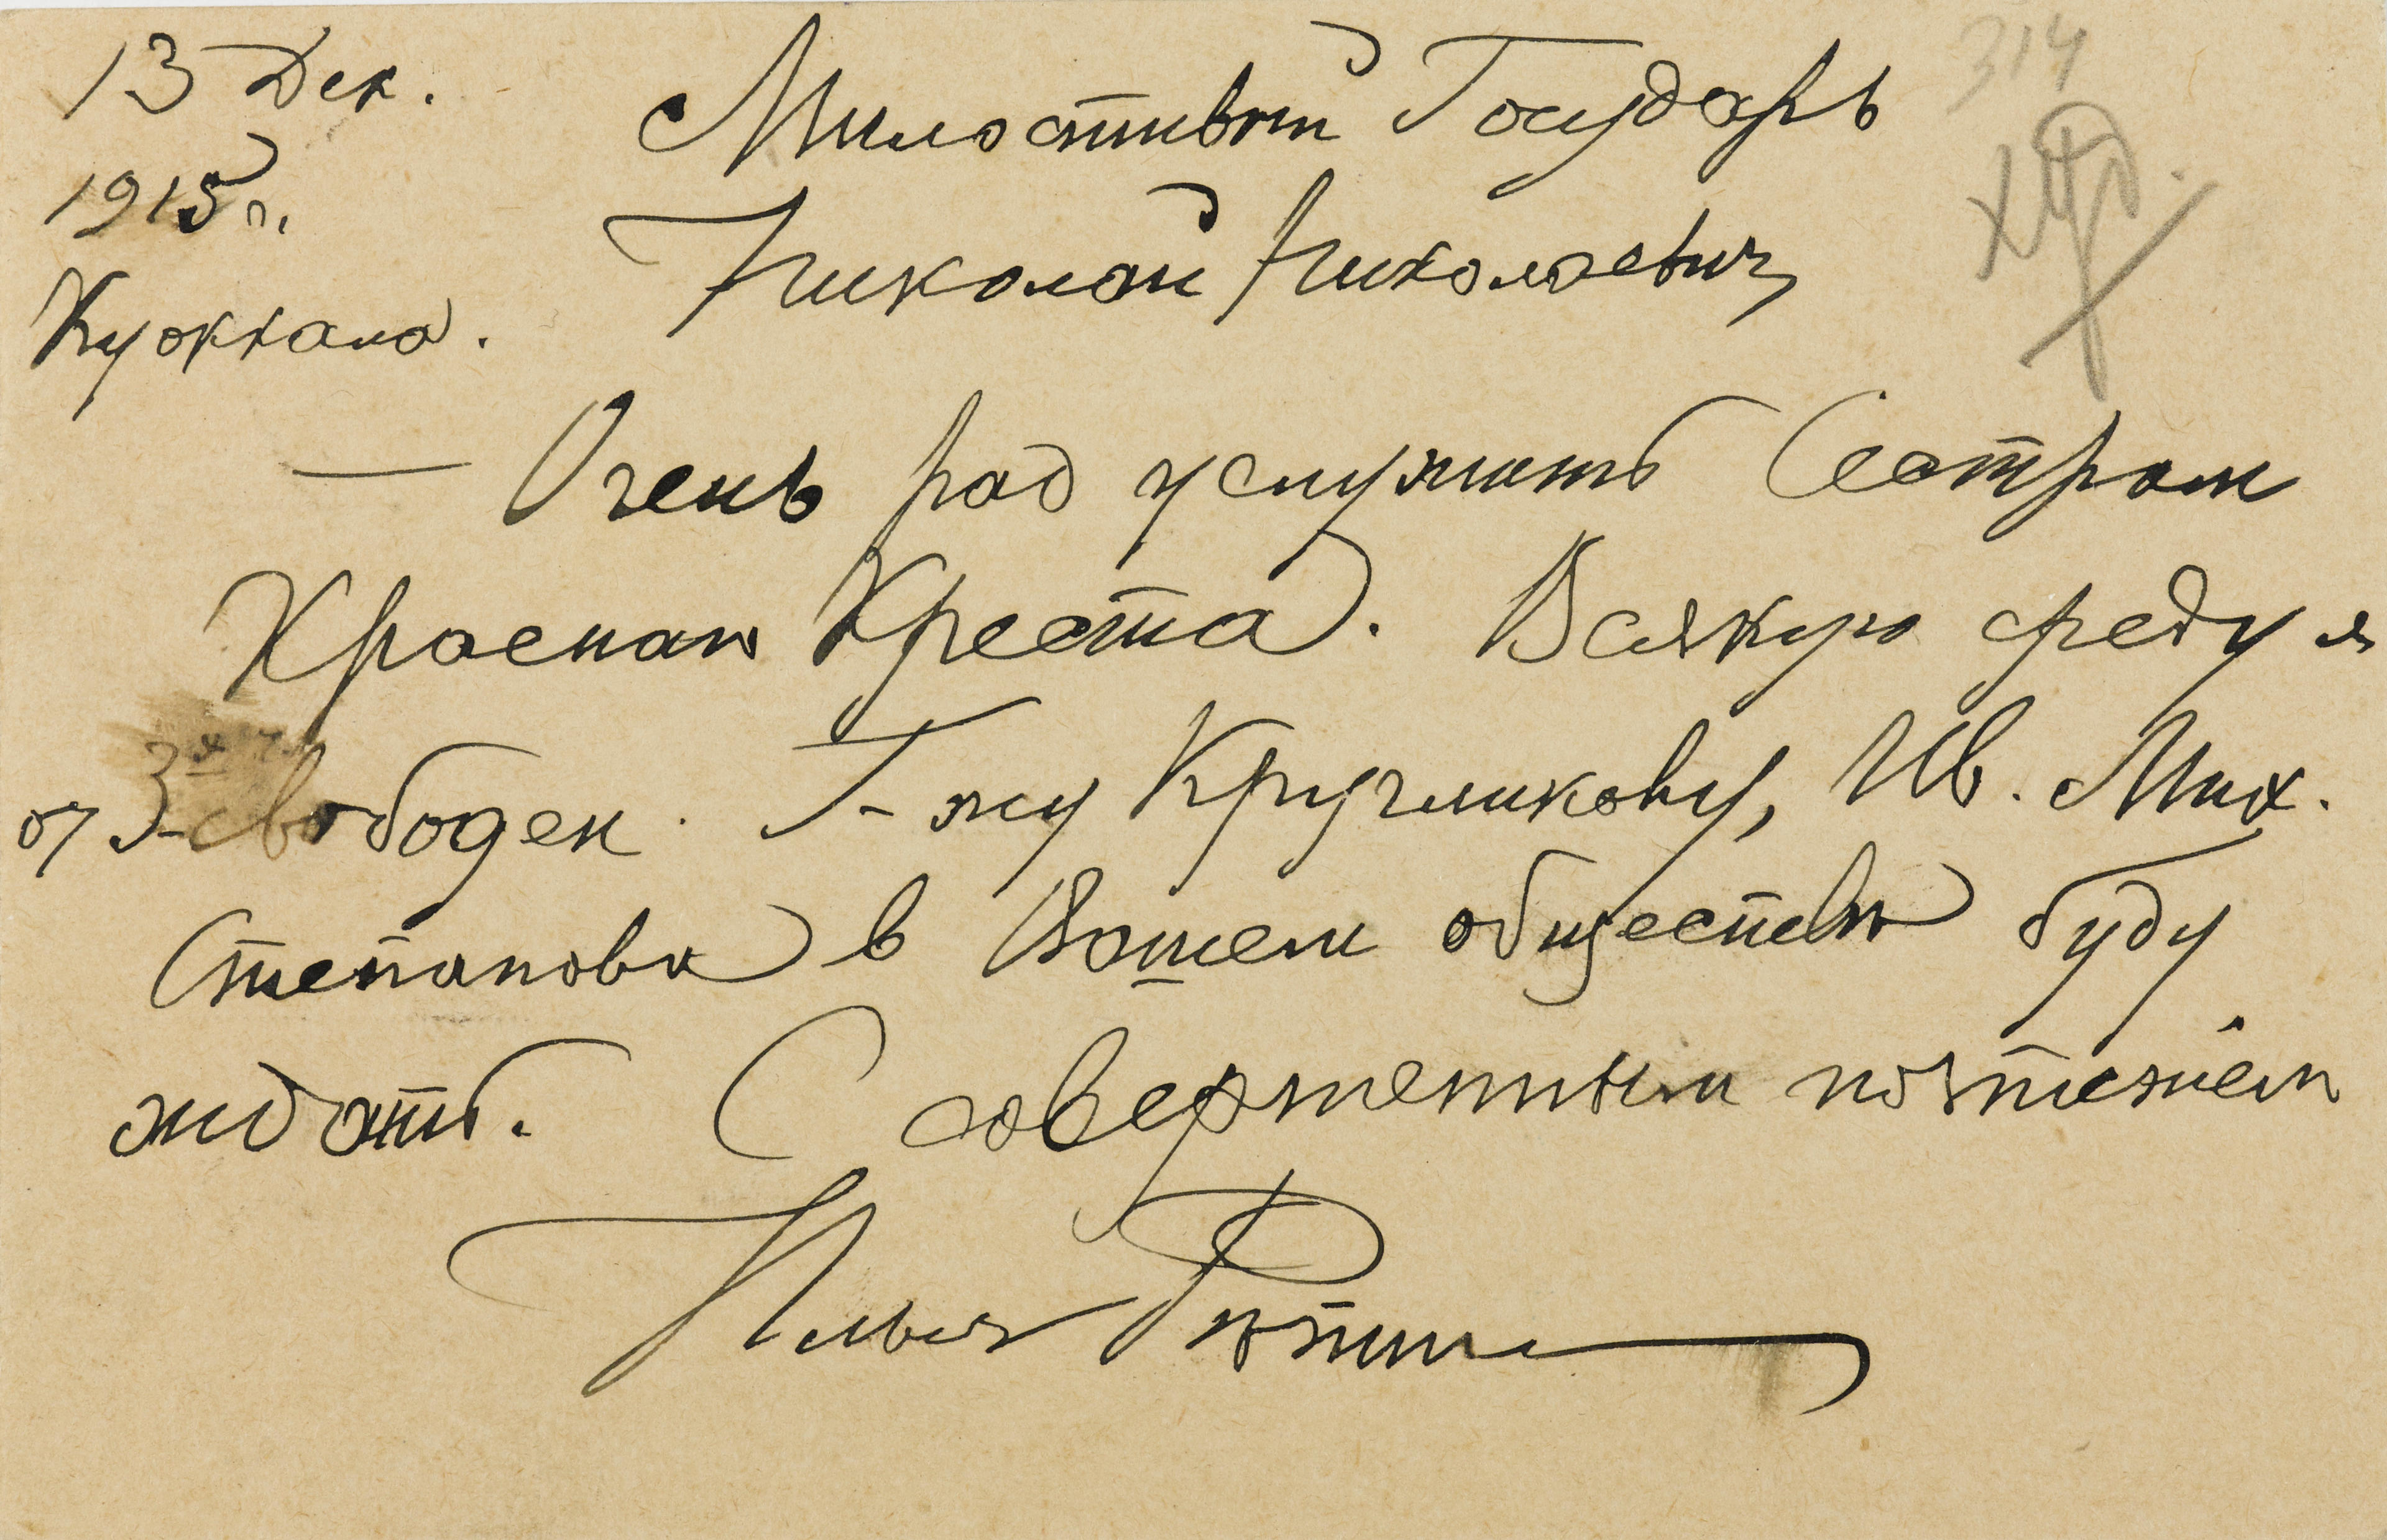 13 Дек.
1915 г.
Куоккала.
314
Милостивый Государь
Николай Николаевич,
— Очень рад услужить Сестрам
Краснаго Креста. Всякую среду я
от 3-х ч. свободен. Г-жу Кругликову, Ив. Мих.
Степанова в Вашем обществе буду
ждать. С совершенным почтеніем
Илья Репин